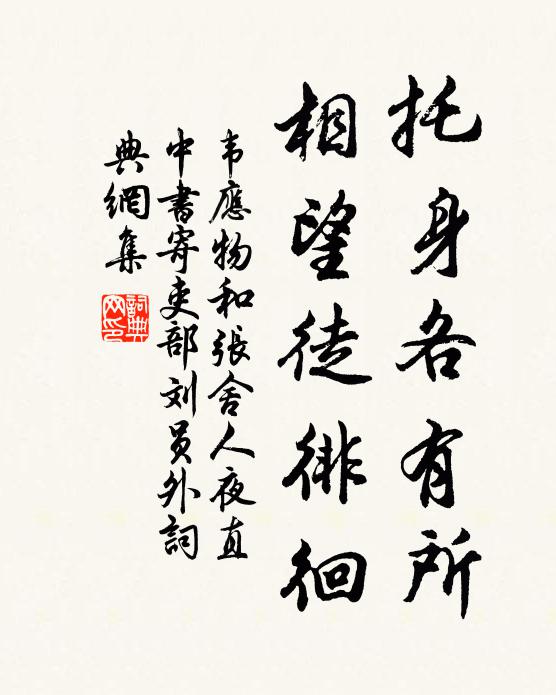 托身各有所
相望徒徘徊
韦應物和張舍人夜直
中書寄吏部刘員外詞
典網集
詞典
网印